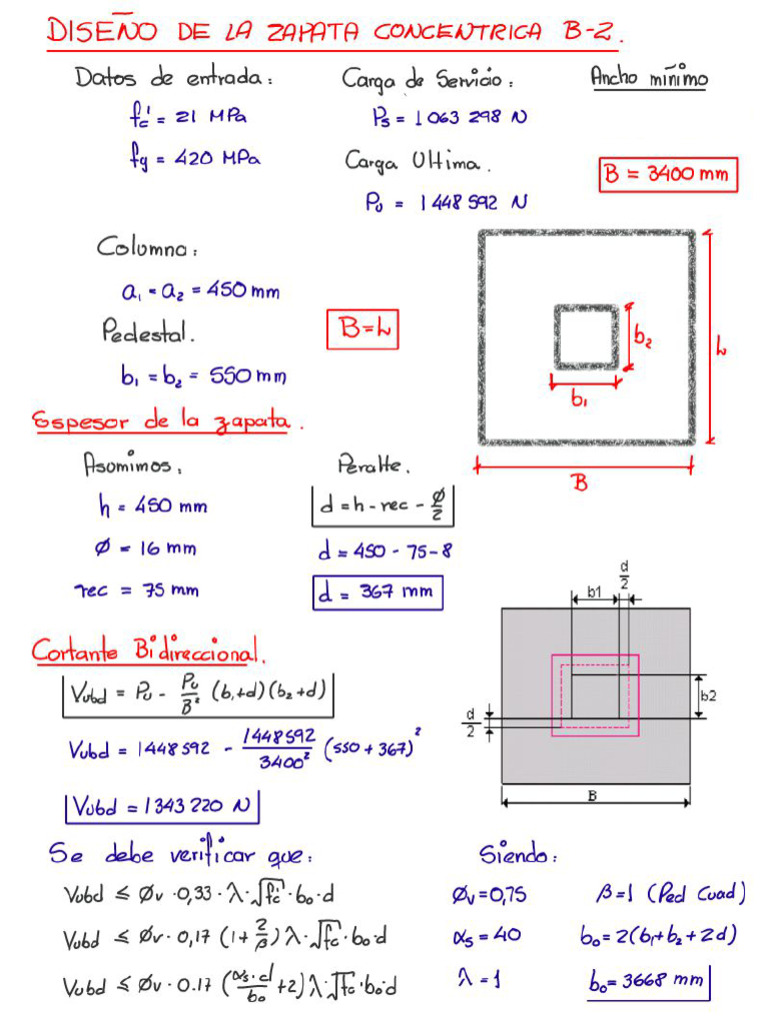 DISEÑO DE LA ZAPATA CONCENTRICA B-2.
Datos de entrada:
f'c = 21 MPa
fy = 420 MPa
Carga de Servicio:
Ps = 1 063 298 N
Carga Ultima.
Pu = 1 448 592 N
Ancho mínimo
B = 3400 mm
Columna:
a₁ = a₂ = 450 mm
Pedestal.
b₁ = b₂ = 550 mm
B=L
b₂
b₁
L
B
Espesor de la zapata.
Asumimos,
h = 450 mm
ø = 16 mm
rec = 75 mm
Peralte.
d = h - rec - ø/2
d = 450 - 75 - 8
d = 367 mm
d/2
b1
b2
d/2
B
Cortante Bidireccional.
Vubd = Pu - Pu/B² (b₁+d)(b₂+d)
Vubd = 1448 592 - 1448592/3400² (550 + 367)²
Vubd = 1343 220 N
Se debe verificar que:
Vubd ≤ øv · 0,33 · λ · √f'c · bo · d
Vubd ≤ øv · 0,17 (1 + 2/β) λ · √f'c · bo·d
Vubd ≤ øv · 0.17 (αs·d/bo + 2) λ·√f'c · bo·d
Siendo:
øv = 0,75
αs = 40
λ = 1
β = 1 (Ped Cuad)
bo = 2(b₁+b₂+2d)
bo = 3668 mm